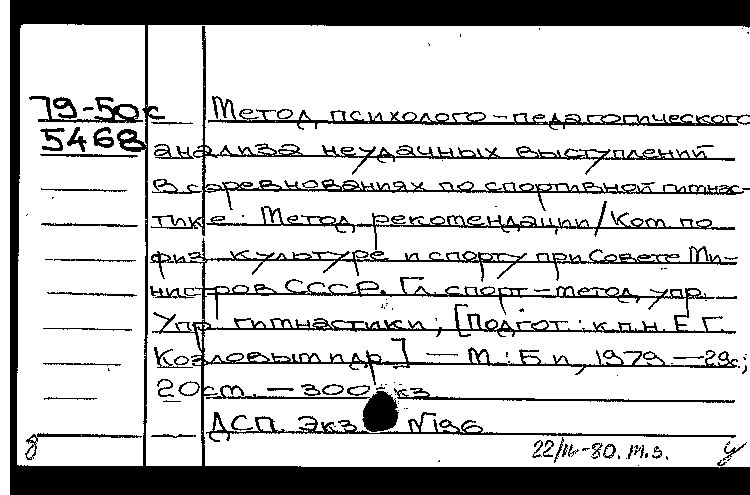 79-50к Метод психолого-педагогического
5468 анализа неудачных выступлений
в соревнованиях по спортивной гимнас-
тике: Метод, рекомендации/Ком. по
физ. культуре и спорту при Совете Ми-
нистров СССР. Гл. спорт-метод. упр.
Упр. гимнастики; [Подгот.: к.п.н. Е.Г.
Козловым и др.] — М.: Б.и., 1979. — 29с;
20см. — 300 экз.
ДСП. Экз N196
22/IV-80. т.з.